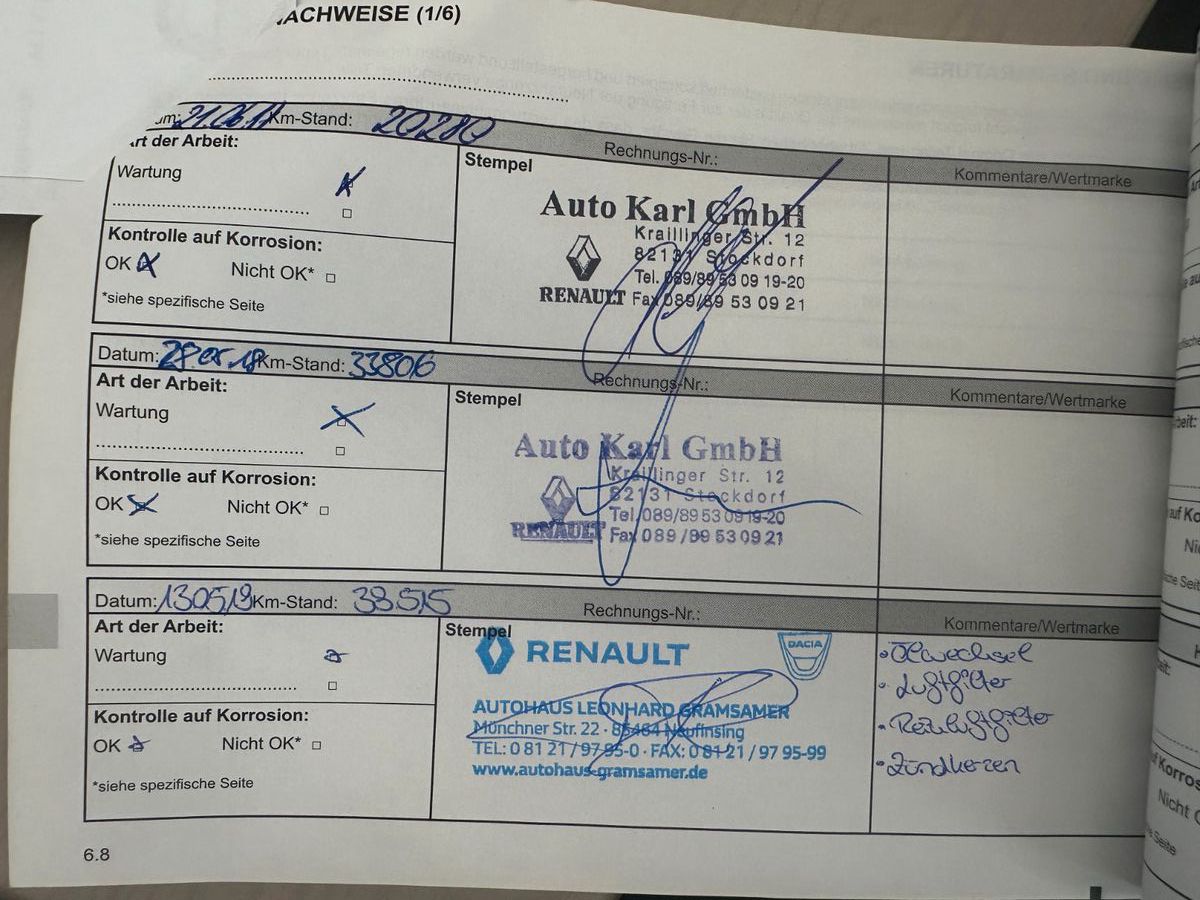 ACHWEISE (1/6)
um: 21.06.17 Km-Stand: 20280 Rechnungs-Nr.: Kommentare/Wertmarke
rt der Arbeit:
Wartung
Kontrolle auf Korrosion:
OK Nicht OK* 
*siehe spezifische Seite
Stempel
Auto Karl GmbH
Kraillinger Str. 12
82131 Stockdorf
Tel. 089/89 53 09 19-20
RENAULT Fax 089/89 53 09 21
Datum: Km-Stand: 33806 Rechnungs-Nr.: Kommentare/Wertmarke
Art der Arbeit:
Wartung
Kontrolle auf Korrosion:
OK Nicht OK*
*siehe spezifische Seite
Stempel
Auto Karl GmbH
Kraillinger Str. 12
82131 Stockdorf
Tel. 089/89 53 09 19-20
RENAULT Fax 089/89 53 09 21
Datum: 130519 Km-Stand: 38515 Rechnungs-Nr.: Kommentare/Wertmarke
Art der Arbeit:
Wartung
Kontrolle auf Korrosion:
OK Nicht OK*
*siehe spezifische Seite
Stempel
RENAULT DACIA
AUTOHAUS LEONHARD GRAMSAMER
Münchner Str. 22 · 85464 Neufinsing
TEL: 0 81 21 / 97 95-0 · FAX: 0 81 21 / 97 95-99
www.autohaus-gramsamer.de
• Ölwechsel
• Luftfilter
• Reinluftfilter
• Zündkerzen
6.8